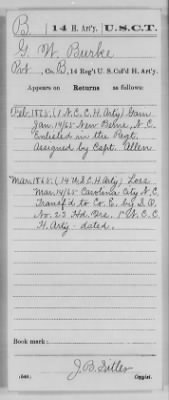 B. | 14 H. Art'y. | U.S.C.T.
G. W. Burke
Pvt, Co. B, 14 Reg't U. S. Col'd H. Art'y.
Appears on Returns as follows:
Feb. 1865. (1 N.C.C.H. Arty) Gain
Jan. 14/65 New Berne, N.C.
Enlisted in the Regt.
Assigned by Capt. Allen
Mar. 1865. (14 U.S.C.H. Arty) Loss
Mar. 14/65 Carolina City N.C.
Transf'd to Co. E. by S.O.
No. 23 Hd. Qrs. 1" N.C.C.
H. Arty - dated.
Book mark:
(546)
Copyist.